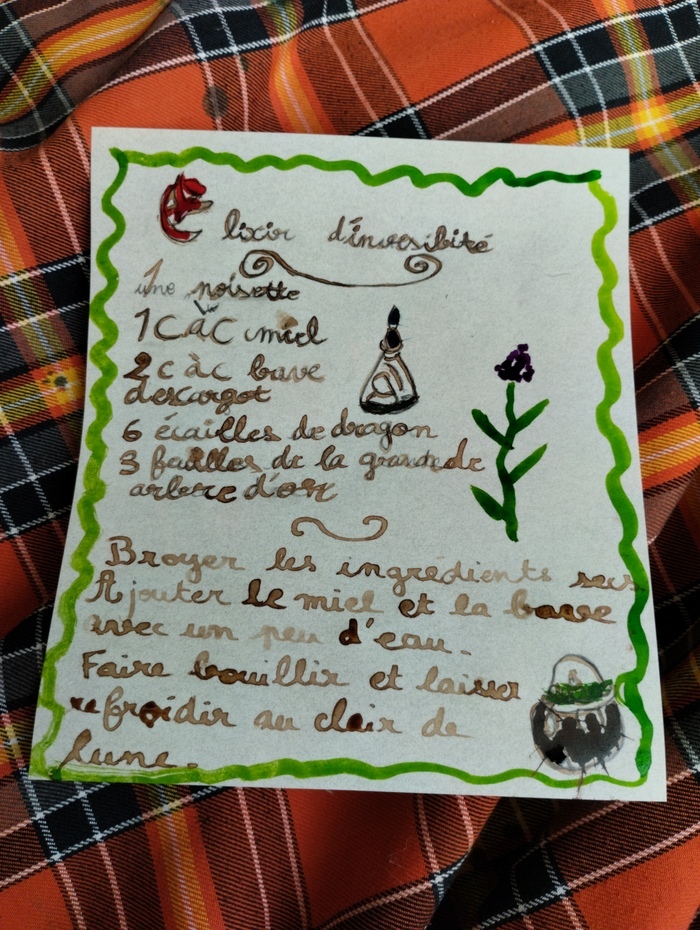 Elixir d'invisibilité
une noisette
1 c à c miel
2 c à c bave
d'escargot
6 écailles de dragon
3 feuilles de la
arbre d'or
Broyer les ingrédients secs
Ajouter le miel et la bave
avec un peu d'eau.
Faire bouillir et laisser
refroidir au clair de
lune.